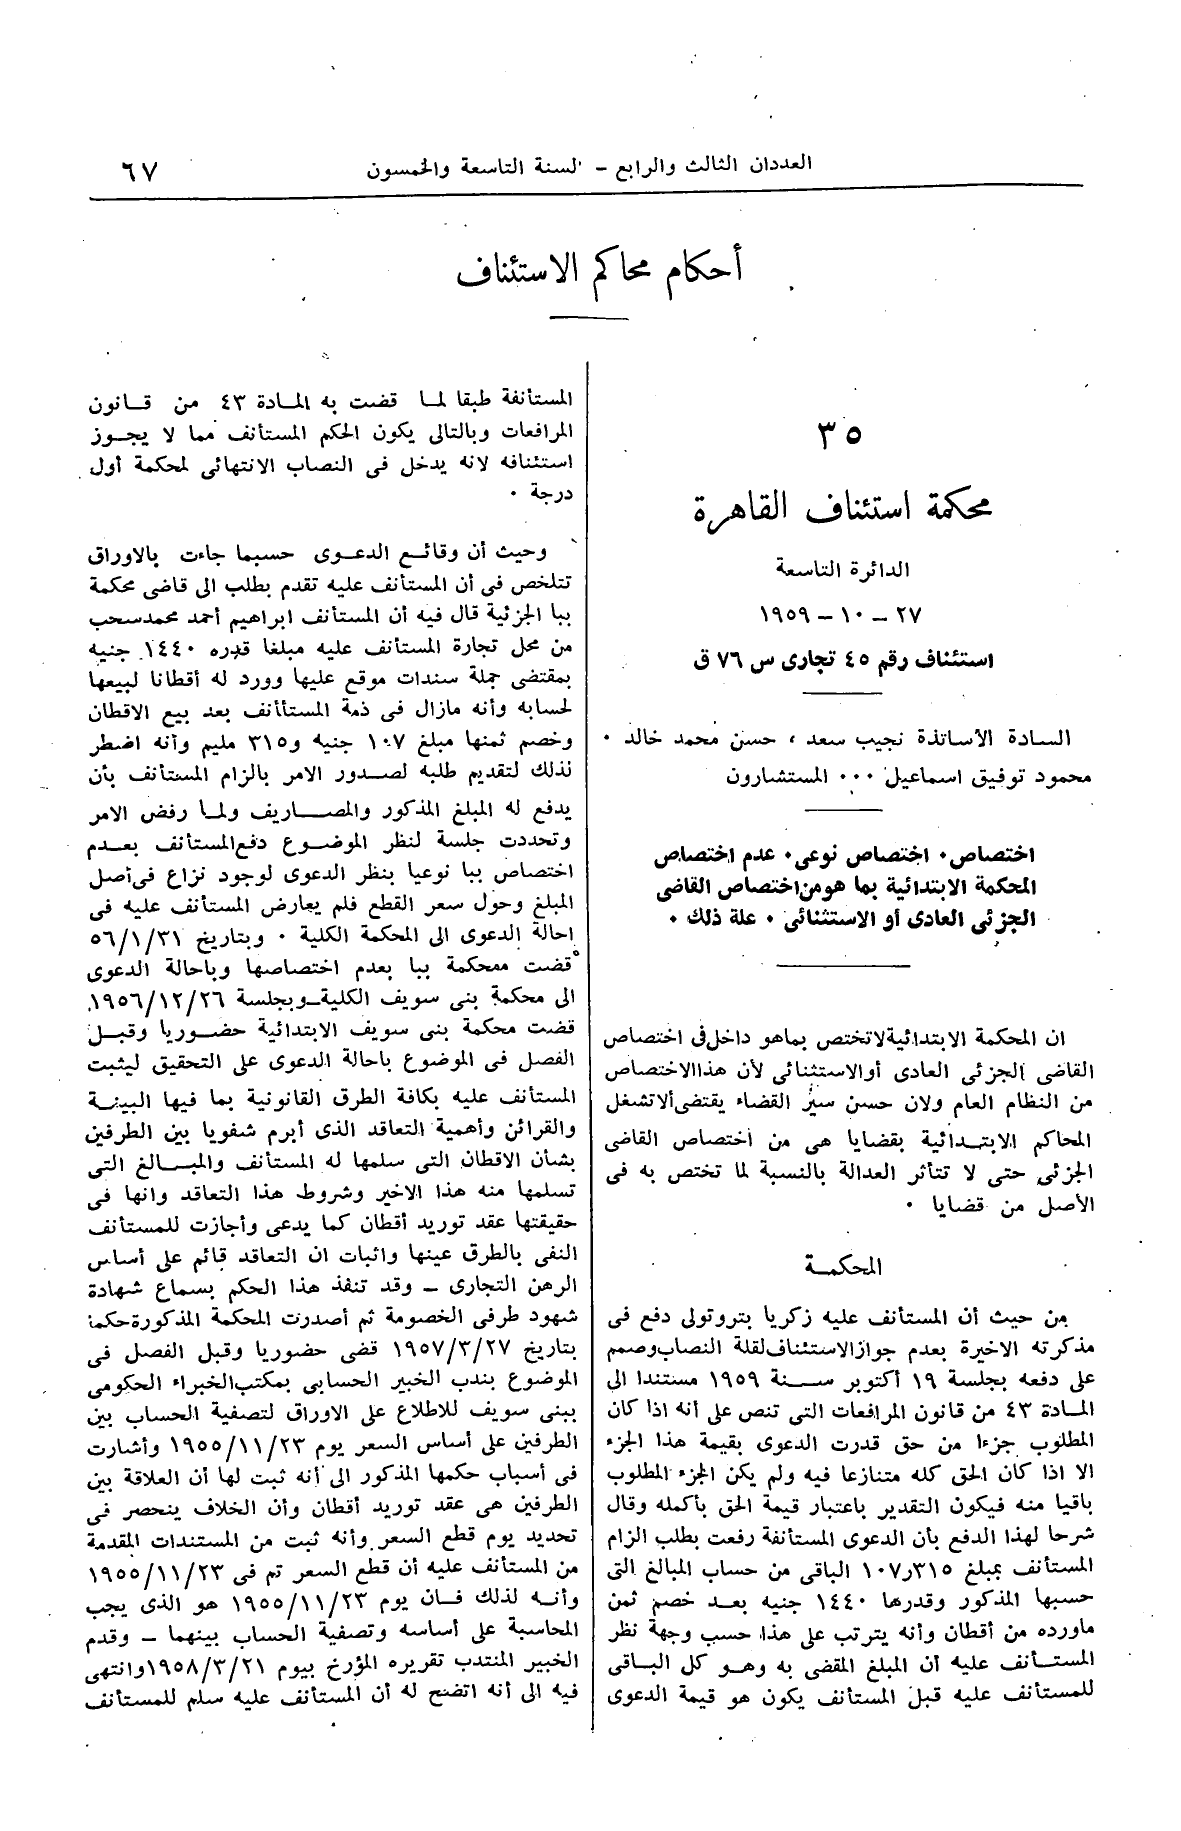 العددان الثالث والرابع – السنة التاسعة والخمسون
٦٧
أحكام محاكم الاستئناف
٣٥
محكمة استئناف القاهرة
الدائرة التاسعة
٢٧ – ١٠ – ١٩٥٩
استئناف رقم ٤٥ تجارى س ٧٦ ق
السادة الأساتذة نجيب سعد ، حسن محمد خالد ٠
محمود توفيق اسماعيل ٠٠٠ المستشارون
اختصاص٠ اختصاص نوعى٠ عدم اختصاص
المحكمة الابتدائية بما هومن اختصاص القاضى
الجزئى العادى أو الاستثنائى ٠ علة ذلك ٠
ان المحكمة الابتدائية لاتختص بماهو داخل فى اختصاص
القاضى الجزئى العادى أوالاستثنائى لأن هذا الاختصاص
من النظام العام ولان حسن سير القضاء يقتضى ألا تشغل
المحاكم الابتدائية بقضايا هى من اختصاص القاضى
الجزئى حتى لا تتأثر العدالة بالنسبة لما تختص به فى
الأصل من قضايا ٠
المحكمة
من حيث أن المستأنف عليه زكريا بتروتولى دفع فى
مذكرته الاخيرة بعدم جواز الاستئناف لقلة النصاب وصمم
على دفعه بجلسة ١٩ أكتوبر سنة ١٩٥٩ مستندا الى
المادة ٤٣ من قانون المرافعات التى تنص على أنه اذا كان
المطلوب جزءا من حق قدرت الدعوى بقيمة هذا الجزء
الا اذا كان الحق كله متنازعا فيه ولم يكن الجزء المطلوب
باقيا منه فيكون التقدير باعتبار قيمة الحق بأكمله وقال
شرحا لهذا الدفع بأن الدعوى المستأنفة رفعت بطلب الزام
المستأنف بمبلغ ٣١٥ر١٠٧ الباقى من حساب المبالغ التى
حسبها المذكور وقدرها ١٤٤٠ جنيه بعد خصم ثمن
ماورده من أقطان وأنه يترتب على هذا حسب وجهة نظر
المستأنف عليه أن المبلغ المقضى به وهو كل الباقى
للمستأنف عليه قبل المستأنف يكون هو قيمة الدعوى
المستأنفة طبقا لما قضت به المادة ٤٣ من قانون
المرافعات وبالتالى يكون الحكم المستأنف مما لا يجوز
استئنافه لانه يدخل فى النصاب الانتهائى لمحكمة أول
درجة ٠
وحيث أن وقائع الدعوى حسبما جاءت بالاوراق
تتلخص فى أن المستأنف عليه تقدم بطلب الى قاضى محكمة
ببا الجزئية قال فيه أن المستأنف ابراهيم أحمد محمد سحب
من محل تجارة المستأنف عليه مبلغا قدره ١٤٤٠ جنيه
بمقتضى جملة سندات موقع عليها وورد له أقطانا لبيعها
لحسابه وأنه مازال فى ذمة المستأنف بعد بيع الاقطان
وخصم ثمنها مبلغ ١٠٧ جنيه و٣١٥ مليم وأنه اضطر
لذلك لتقديم طلبه لصدور الامر بالزام المستأنف بأن
يدفع له المبلغ المذكور والمصاريف ولما رفض الامر
وتحددت جلسة لنظر الموضوع دفع المستأنف بعدم
اختصاص ببا نوعيا بنظر الدعوى لوجود نزاع فى أصل
المبلغ وحول سعر القطع فلم يعارض المستأنف عليه فى
احالة الدعوى الى المحكمة الكلية ٠ وبتاريخ ٥٦/١/٣١
قضت محكمة ببا بعدم اختصاصها وباحالة الدعوى
الى محكمة بنى سويف الكلية – وبجلسة ١٩٥٦/١٢/٢٦
قضت محكمة بنى سويف الابتدائية حضوريا وقبل
الفصل فى الموضوع باحالة الدعوى على التحقيق ليثبت
المستأنف عليه بكافة الطرق القانونية بما فيها البينة
والقرائن وأهمية التعاقد الذى أبرم شفويا بين الطرفين
بشأن الاقطان التى سلمها له المستأنف والمبالغ التى
تسلمها منه هذا الاخير وشروط هذا التعاقد وانها فى
حقيقتها عقد توريد أقطان كما يدعى وأجازت للمستأنف
النفى بالطرق عينها واثبات ان التعاقد قائم على أساس
الرهن التجارى – وقد تنفذ هذا الحكم بسماع شهادة
شهود طرفى الخصومة ثم أصدرت المحكمة المذكورة حكما
بتاريخ ١٩٥٧/٣/٢٧ قضى حضوريا وقبل الفصل فى
الموضوع بندب الخبير الحسابى بمكتب الخبراء الحكومى
ببنى سويف للاطلاع على الاوراق لتصفية الحساب بين
الطرفين على أساس السعر يوم ١٩٥٥/١١/٢٣ وأشارت
فى أسباب حكمها المذكور الى أنه ثبت لها أن العلاقة بين
الطرفين هى عقد توريد أقطان وأن الخلاف ينحصر فى
تحديد يوم قطع السعر وأنه ثبت من المستندات المقدمة
من المستأنف عليه أن قطع السعر تم فى ١٩٥٥/١١/٢٣
وأنه لذلك فان يوم ١٩٥٥/١١/٢٣ هو الذى يجب
المحاسبة على أساسه وتصفية الحساب بينهما – وقدم
الخبير المنتدب تقريره المؤرخ بيوم ١٩٥٨/٣/٢١ وانتهى
فيه الى أنه اتضح له أن المستأنف عليه سلم للمستأنف